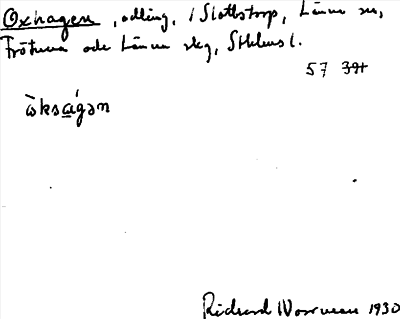 Oxhagen, odling, i Slottstorp, Länna sn,
Frötuna och Länna skg, Sthlms l.
57 391
ò̄ksa̲gən
Rickard 1930